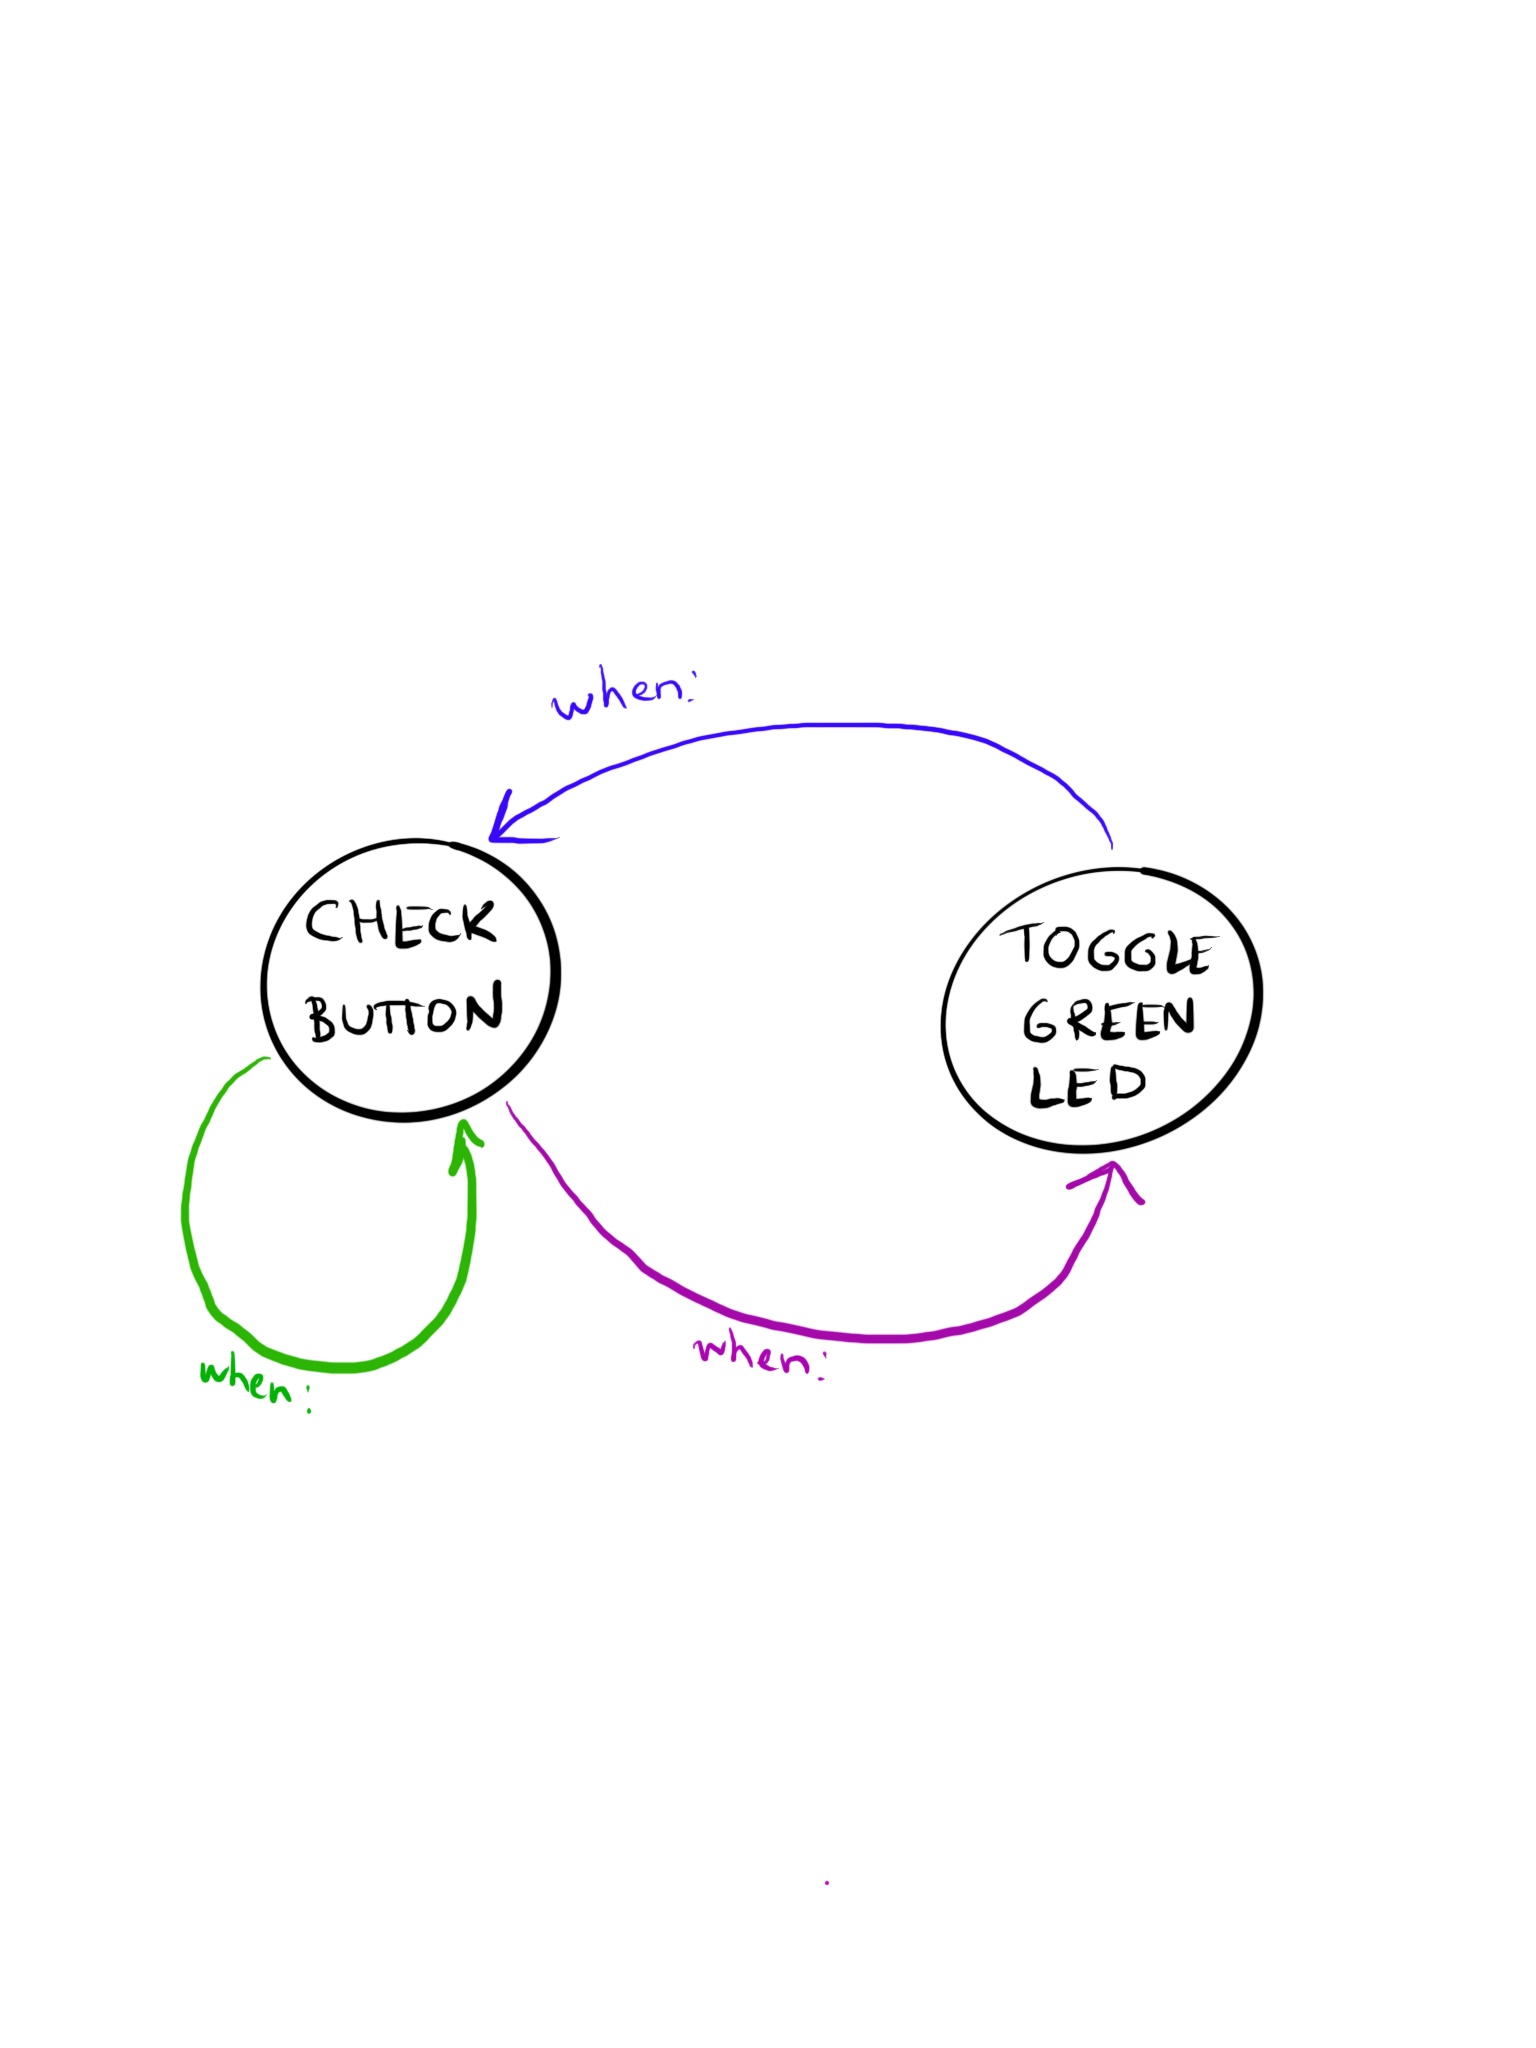 when:
CHECK
BUTTON
TOGGLE
GREEN
LED
when:
when: